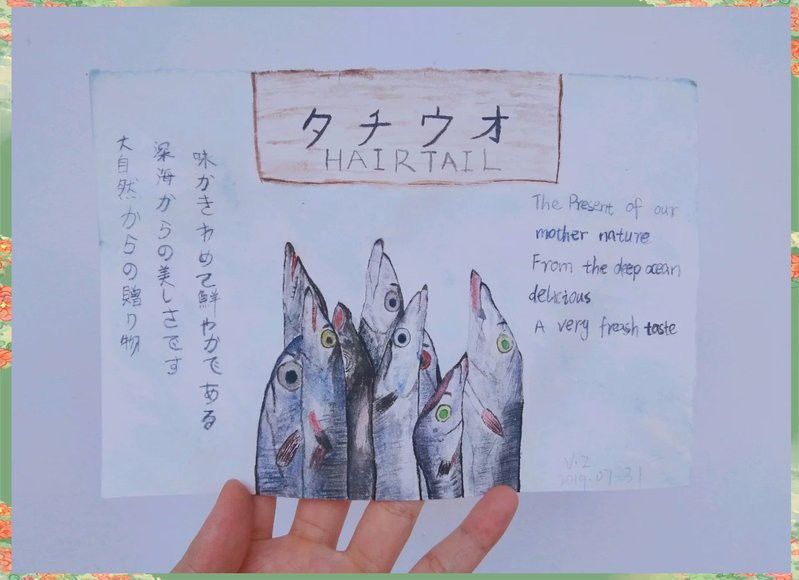 タチウオ
HAIRTAIL
味かきわめて鮮やかである
深海からの美しさです
大自然からの贈り物
The Present of our
mother nature
From the deep ocean
delicious
A very freash taste
V.Z
2019.07.31